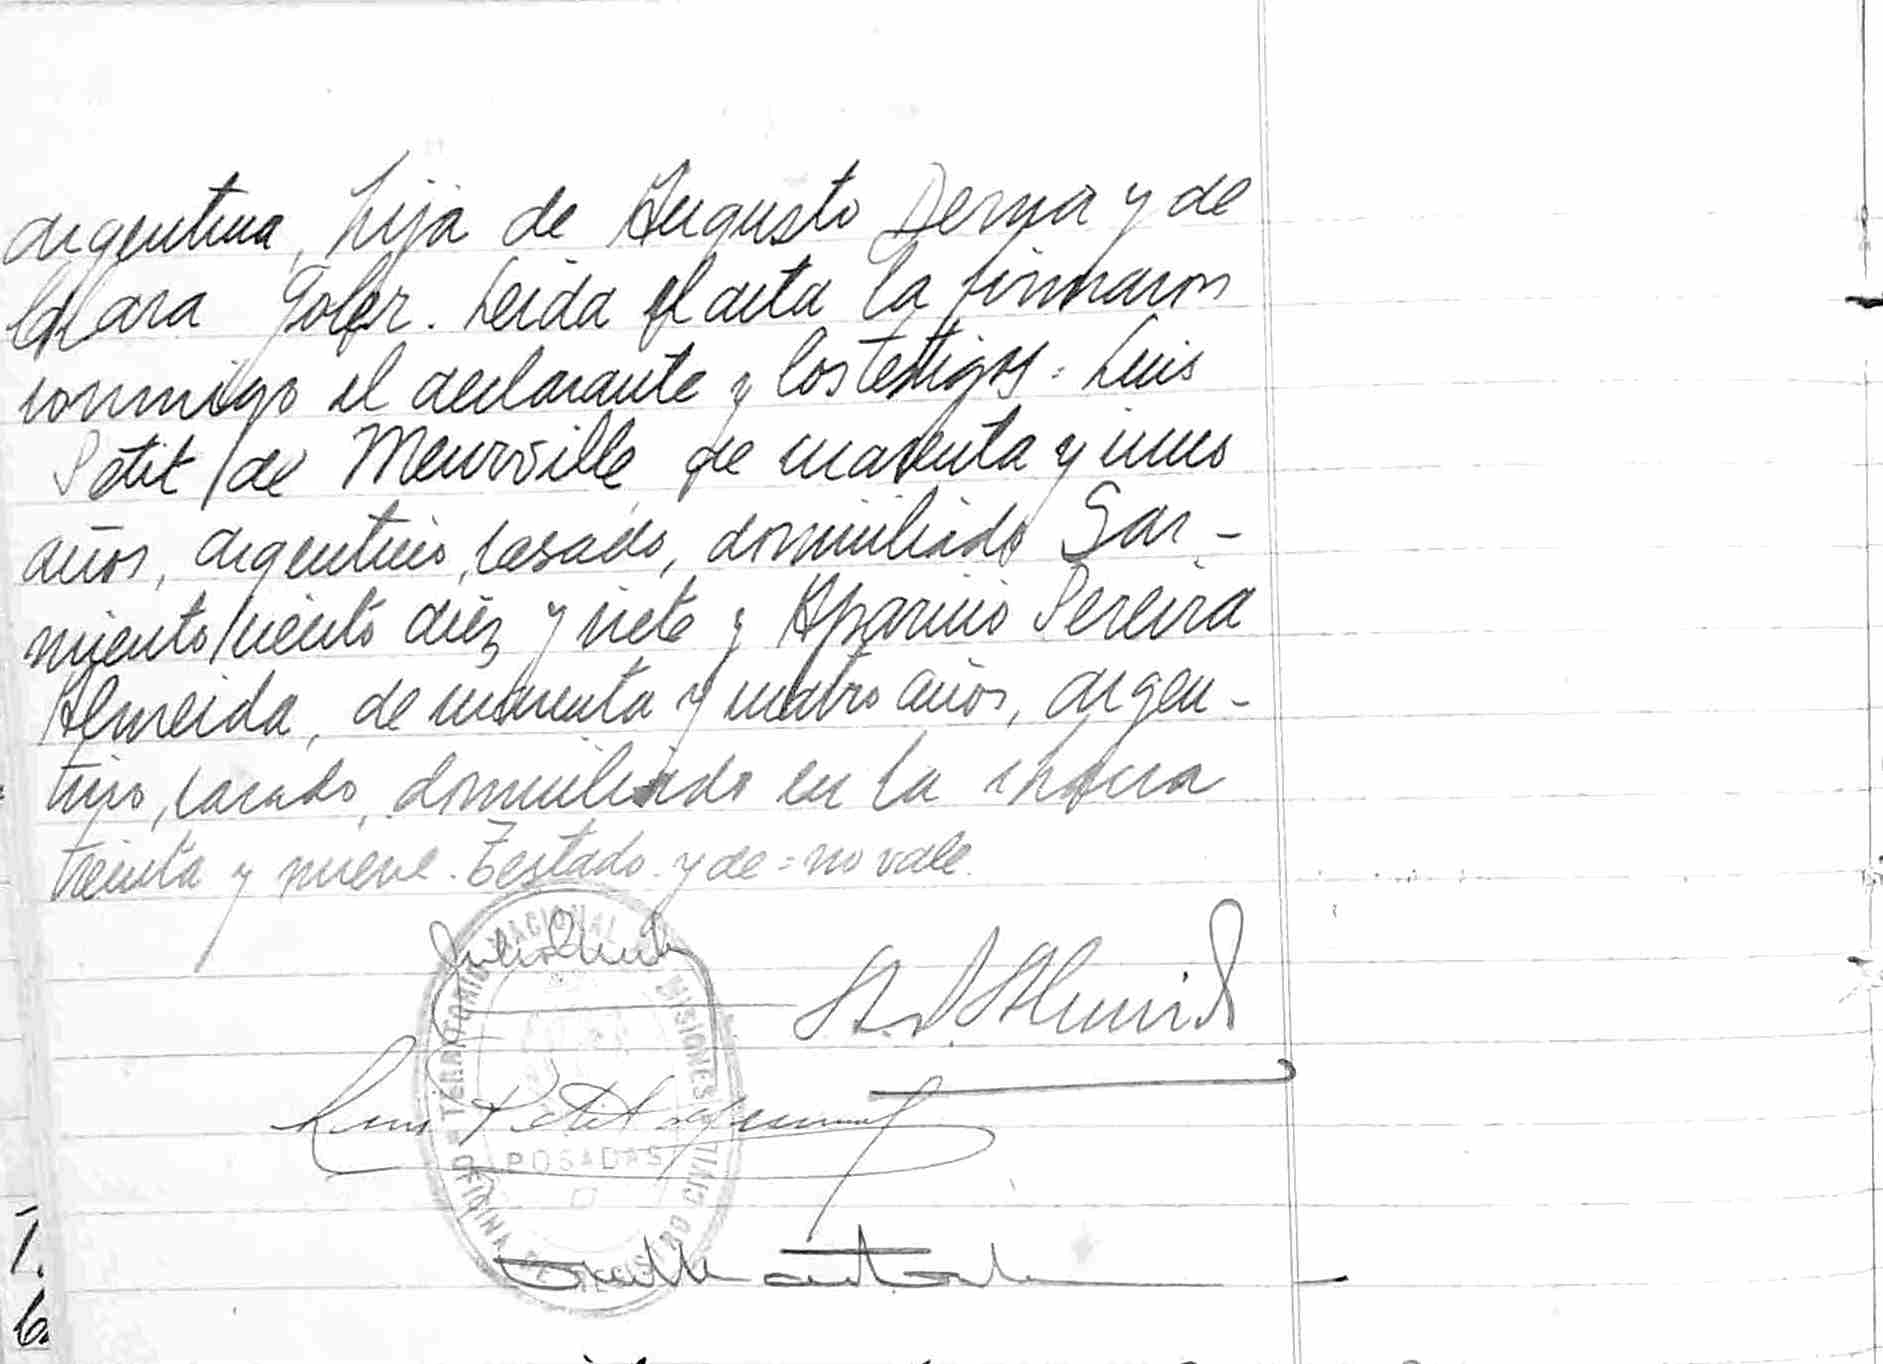 argentina, hija de Augusto Derna y de
Clara Goler. Leida el acta la firmaron
conmigo el declarante y los testigos: Luis
Petit de Meurville, de cuarenta y uno
años, argentino, casado, domiciliado Sar-
miento ciento diez y siete y Aparicio Pereira
Almeida, de cuarenta y cuatro años, argen-
tino, casado, domiciliado en la chacra
treinta y nueve. Testado. y de = no vale.
TERRITORIO NACIONAL DE MISIONES
Luis Petit de
POSADAS
OFICINA DE REGISTRO CIVIL